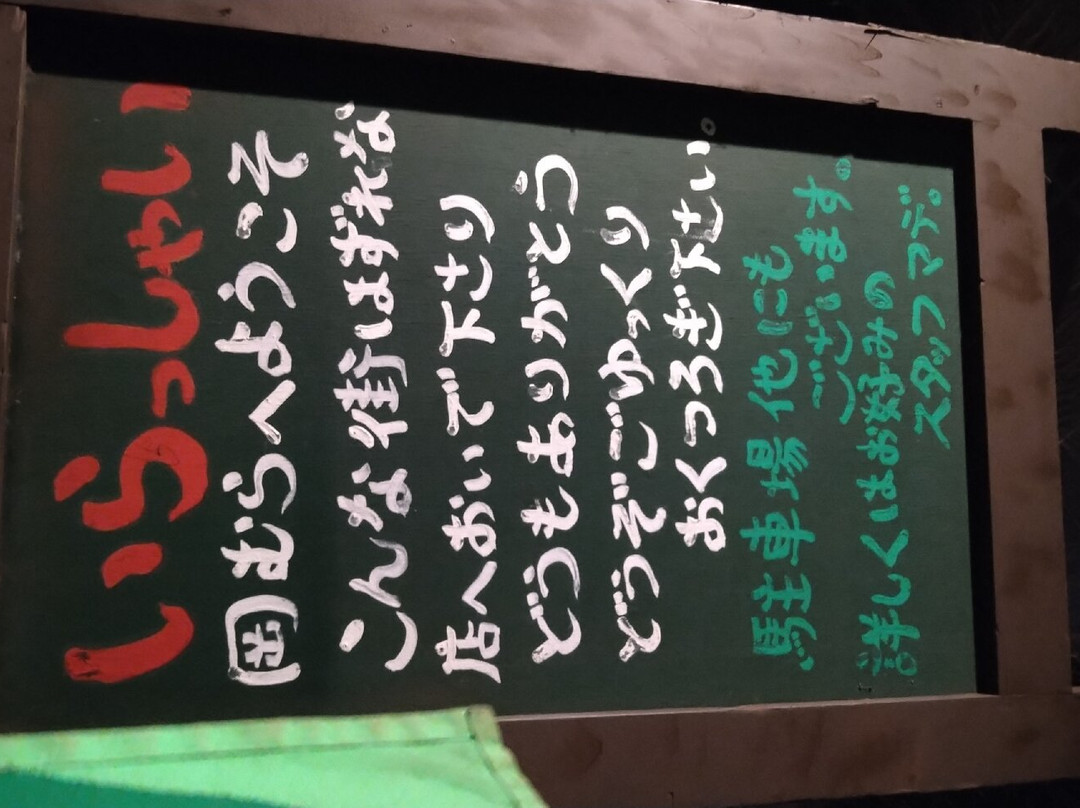 いらっしゃい
むらへようこそ
こんな街はずれな
店へおいで下さり
どうもありがとう
どうぞごゆっくり
おくつろぎ下さい。
駐車場他にも
ございます。
詳しくはお好みの
スタッフマデ。